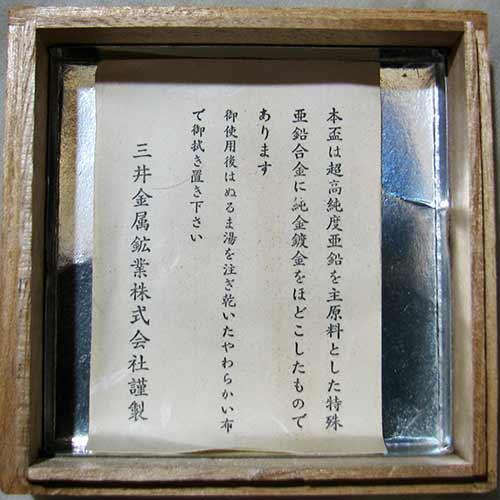 本盃は超高純度亜鉛を主原料とした特殊
亜鉛合金に純金鍍金をほどこしたもので
あります
御使用後はぬるま湯を注ぎ乾いたやわらかい布
で御拭き置き下さい
三井金属鉱業株式会社謹製